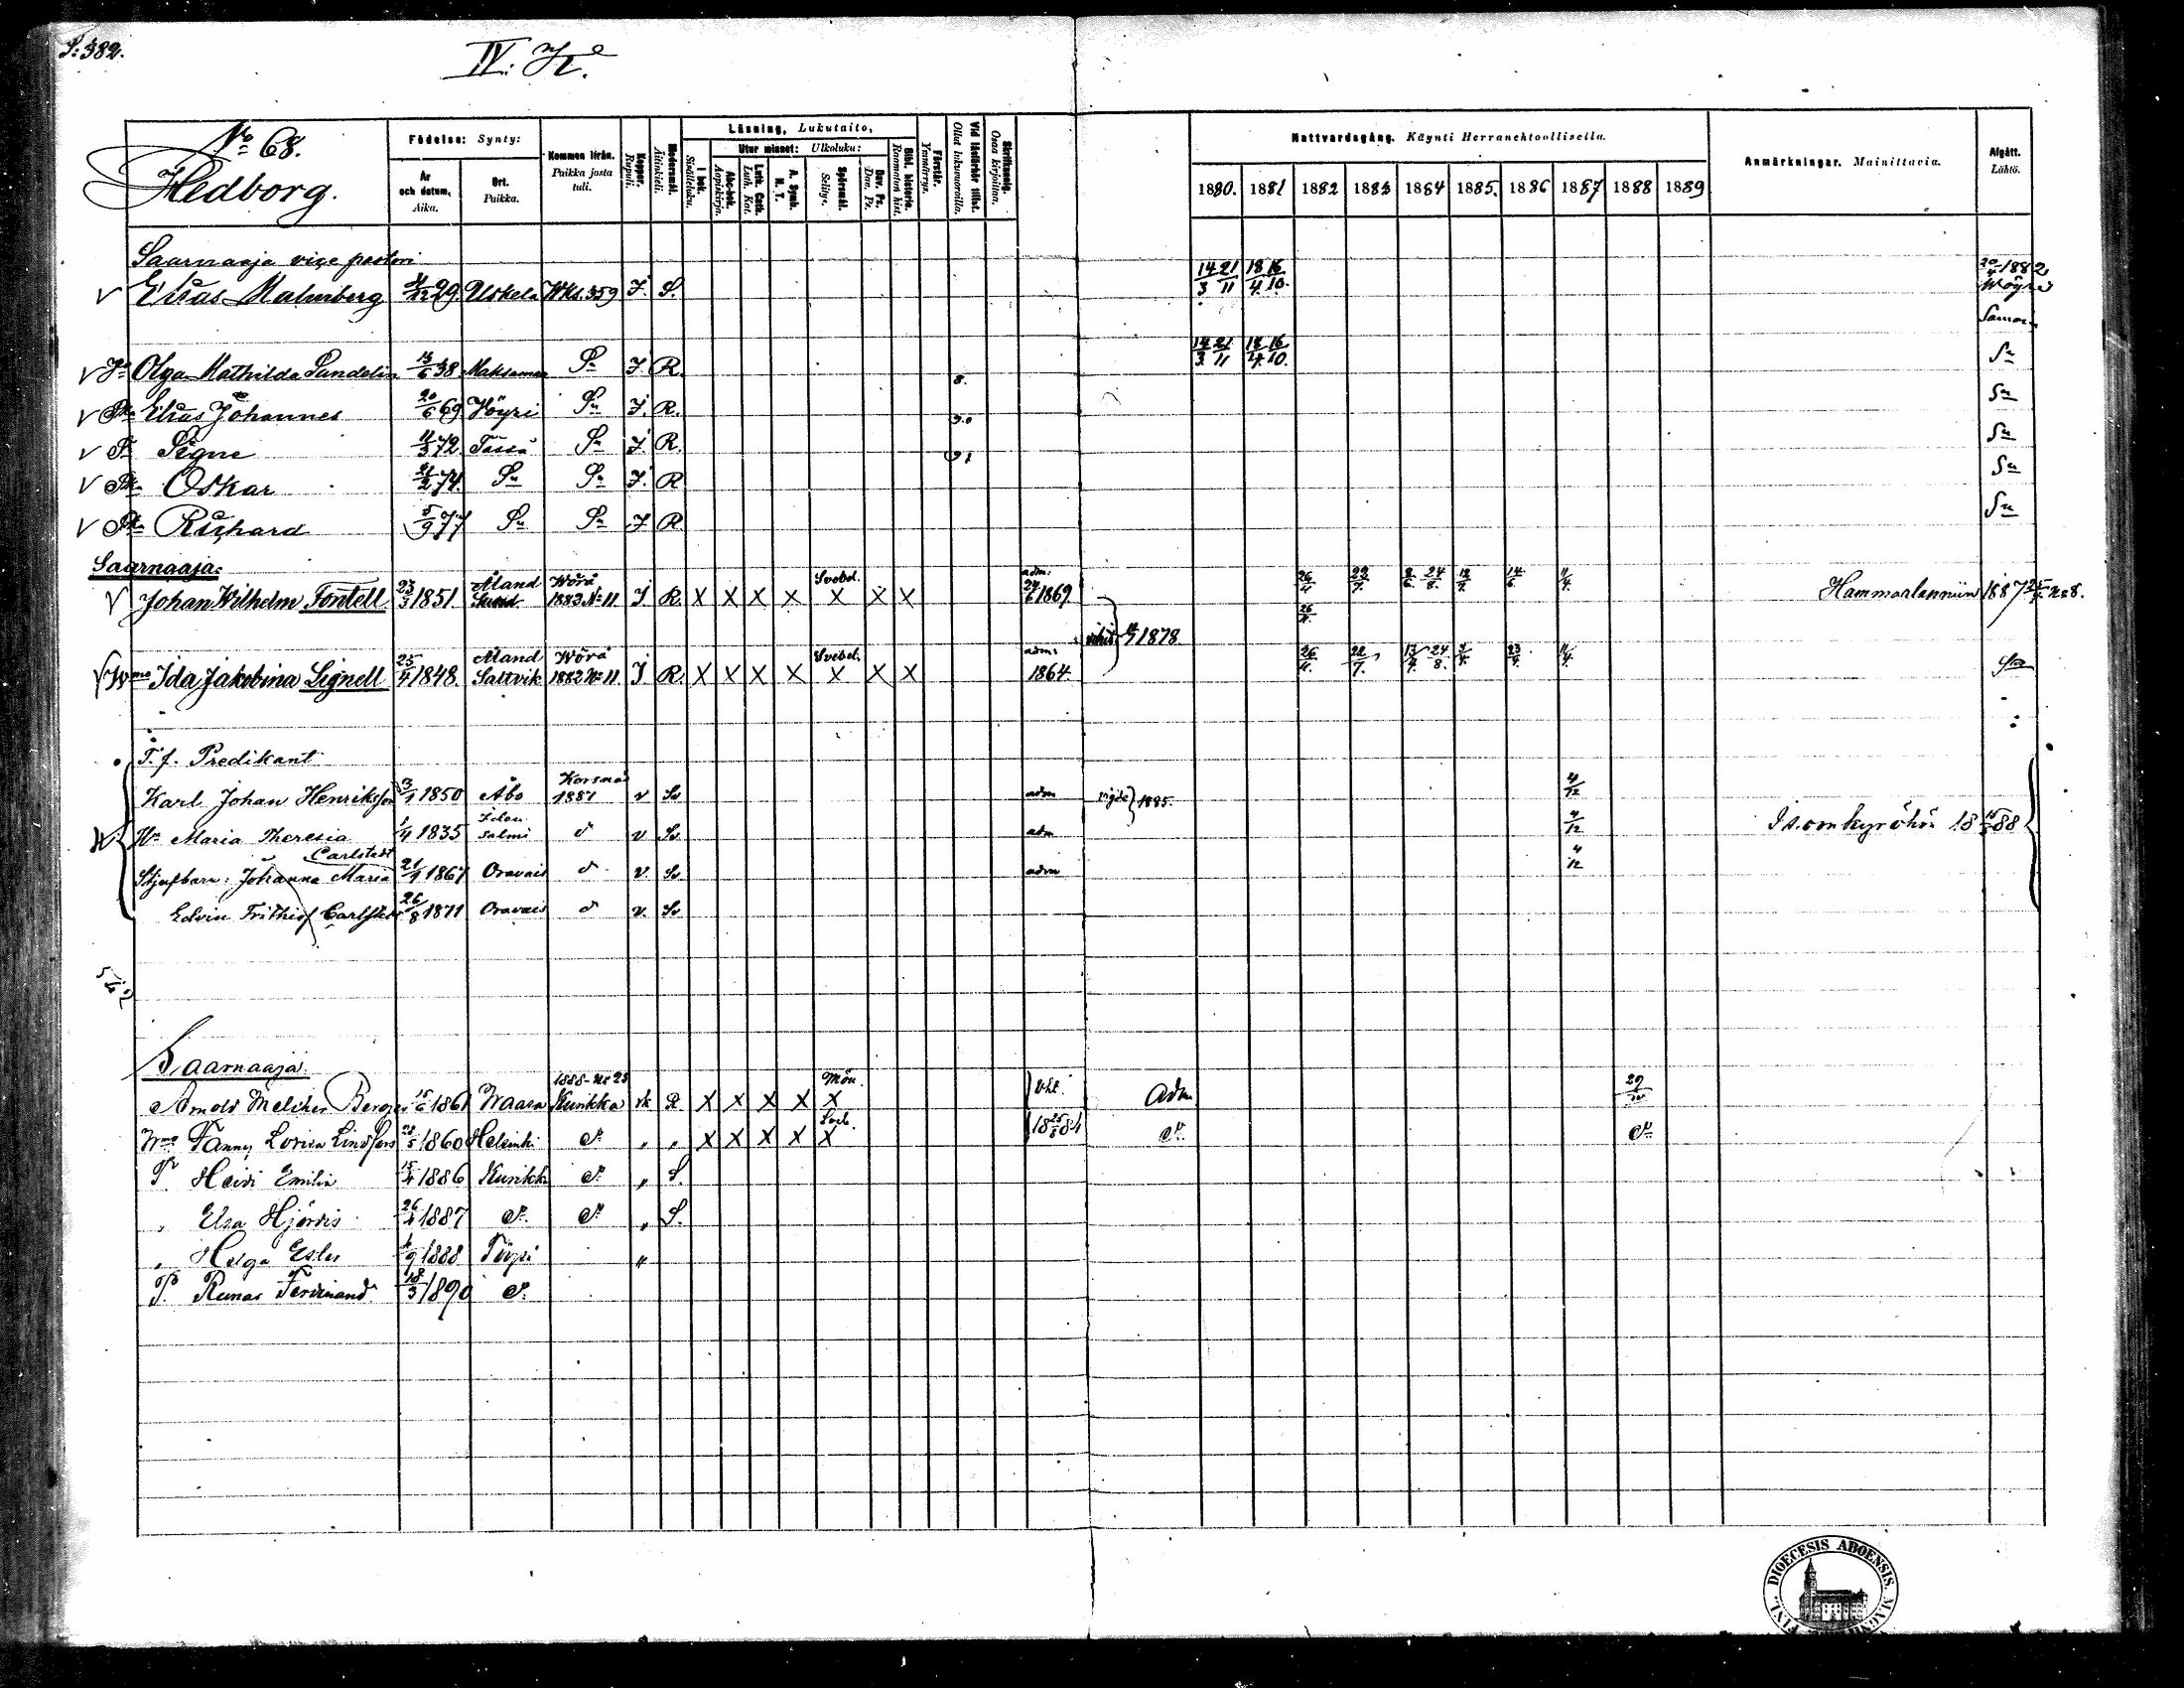 S. 382.
IV. K.
No 68.
Hedborg.
Födelse: Synty:
År och datum, Aika.
Ort. Paikka.
Kommen ifrån. Paikka josta tuli.
Koppor. Rupuli.
Modersmål. Äitinkieli.
Läsning, Lukutaito,
I bok. Sisälleluku.
Utur minnet: Ulkoluku:
Abc-bok. Aapiskirja.
Luth. Cath. Luth. Kat.
A. Symb. N. T.
Spörsmål. Selitys.
Dav. Ps. Dan. Ps.
Bibl. historia. Raamatun hist.
Förstår. Ymmärrys.
Vid läsförhör tillst. Ollut lukuvuoroilla.
Skrifkunnig. Osaa kirjoittaa.
Nattvardsgång. Käynti Herranehtoollisella.
1880. 1881 1882 1883 1884 1885. 1886 1887 1888 1889
Anmärkningar. Mainittavia.
Afgått. Lähtö.
Saarnaaja vice pastori
Elias Malmberg 29 Uskela Wks. 359 J. S. 14/3 21/11 18/4 16/10. 20/4 1882 Wöyri
Samon
Olga Mathilda Sundelin 13/6 38 Maksamaa Sn J. R. 14/3 21/11 18/4 16/10. Sn
Elias Johannes 20/6 69 Vöyri Sn J. R. Sn
Signe 11/3 72 Tässä Sn J. R. Sn
Oskar 21/2 74 Sn Sn J. R Sn
Richard 5/9 77 Sn Sn J R Sn
Saarnaaja:
Johan Wilhelm Fontell 23/3 1851. Åland Sund Wörå 1883 No 11 J R. X X X X Svebel. X X X adm: 24/6 1869 26/11 22/7. 24/8. 14/6. 11/4. Hammarlanniin 1887 No 8.
vihit. 1878
Wmo Ida Jakobina Lignell 25/4 1848. Åland Saltvik Wörå 1882 No 11. J R. X X X X Svebel. X X X adm: 1864 26/11. 22/7. 13/4. 24/8. 23/4. 11/4.
T. f. Predikant
Karl Johan Henriksson 3/1 1850 Åbo Korsnäs 1887 v Sv adm vigde 1885. 4/12
Hu Maria Theresia 1/4 1835 salmi d v. Sv. adm 4/12 Isoonkyröhön 18 88
Carlstedt
Stjufbarn: Johanna Maria 21/1 1867 Oravais d v. Sv. adm 4/12
Edvin Frithiof Carlstedt 26/8 1871 Oravais d v. Sv
Saarnaaja.
Arnold Melcher Berger 1861 Waasa 1888 - No 25 Kurikka rk R X X X X Mön. X Vht. Adm 29
Wmo Fanny Lovisa Lindfors 28/5 1860 Helsinki do " " X X X X X 18 25/8 84 do do
T. Heidi Emilia 1886 Kurikka do " S.
" Elsa Hjördis 26/4 1887 do do " S.
" Helga Ester 1/9 1888 "
P. Runar Ferdinand 18/3 1890 do
DIOECESIS ABOENSIS